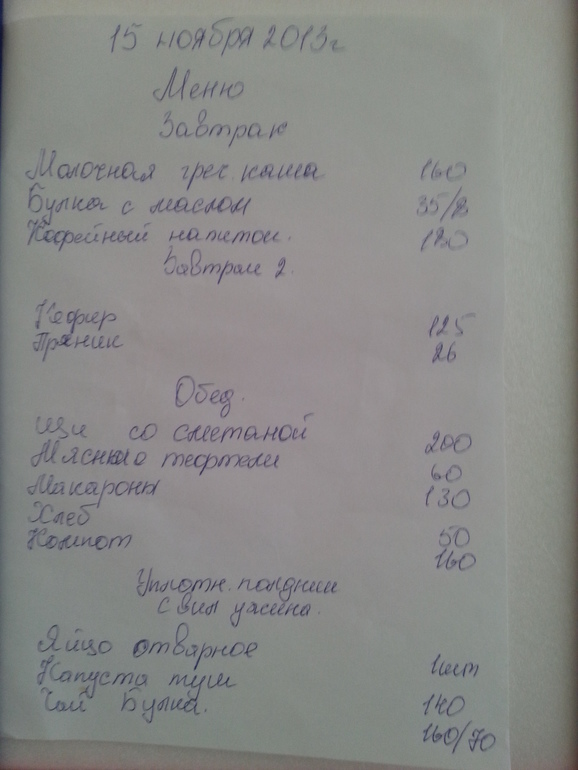 15 ноября 2013г
Меню
Завтрак
Молочная греч. каша 160
Булка с маслом 35/8
Кофейный напиток. 180
Завтрак 2.
Кефир 125
Пряник 26
Обед.
Щи со сметаной 200
Мясные тефтели 60
Макароны 130
Хлеб 50
Компот 160
Уплотн. полдник
с вкл ужина.
Яйцо отварное 1шт
Капуста туш 140
Чай Булка. 160/70